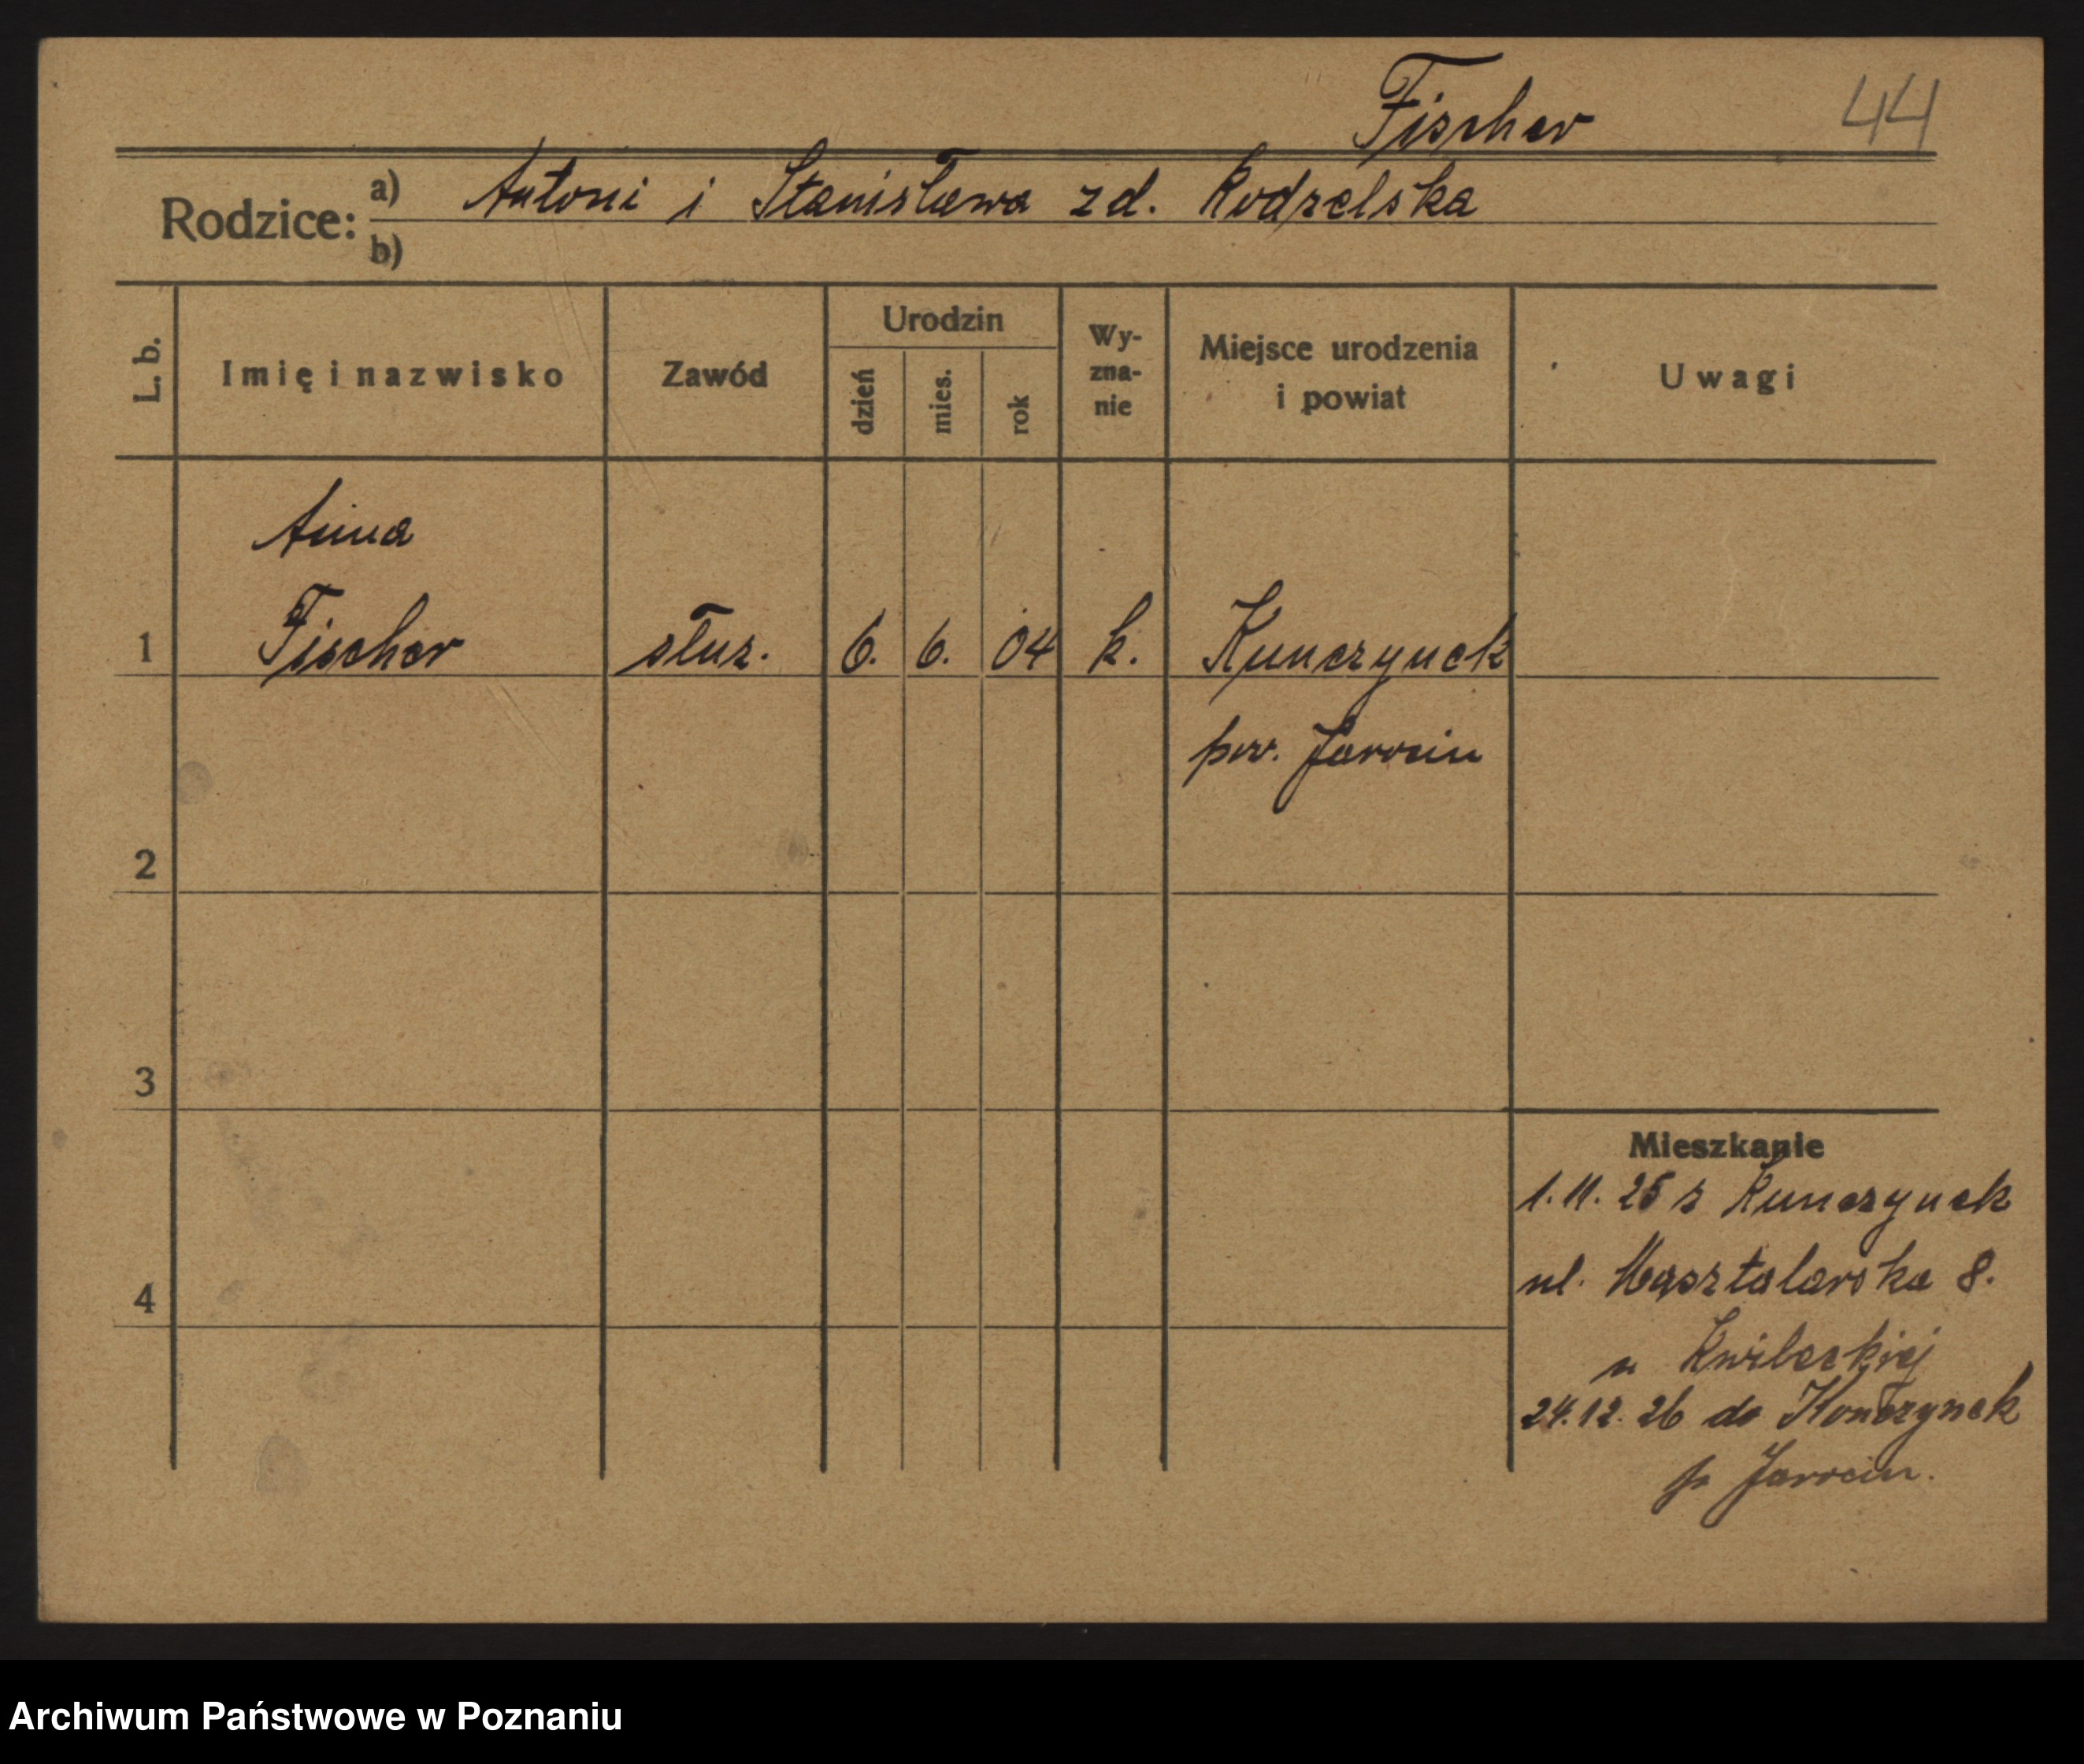 Fischer 44
Rodzice: a) Antoni i Stanisława zd. Rodzelska
b)
L. b. Imię i nazwisko Zawód Urodzin dzień mies. rok Wy-zna-nie Miejsce urodzenia i powiat Uwagi
Anna
1 Fischer służ. 6. 6. 04 k. Kunczynek
pow. Jarocin
2
3
4
Mieszkanie
1.11.25 z Kunczynek
ul. Masztalarska 8.
u Kwileckiej
24.12.26 do Konczynek
p Jarocin.
Archiwum Państwowe w Poznaniu